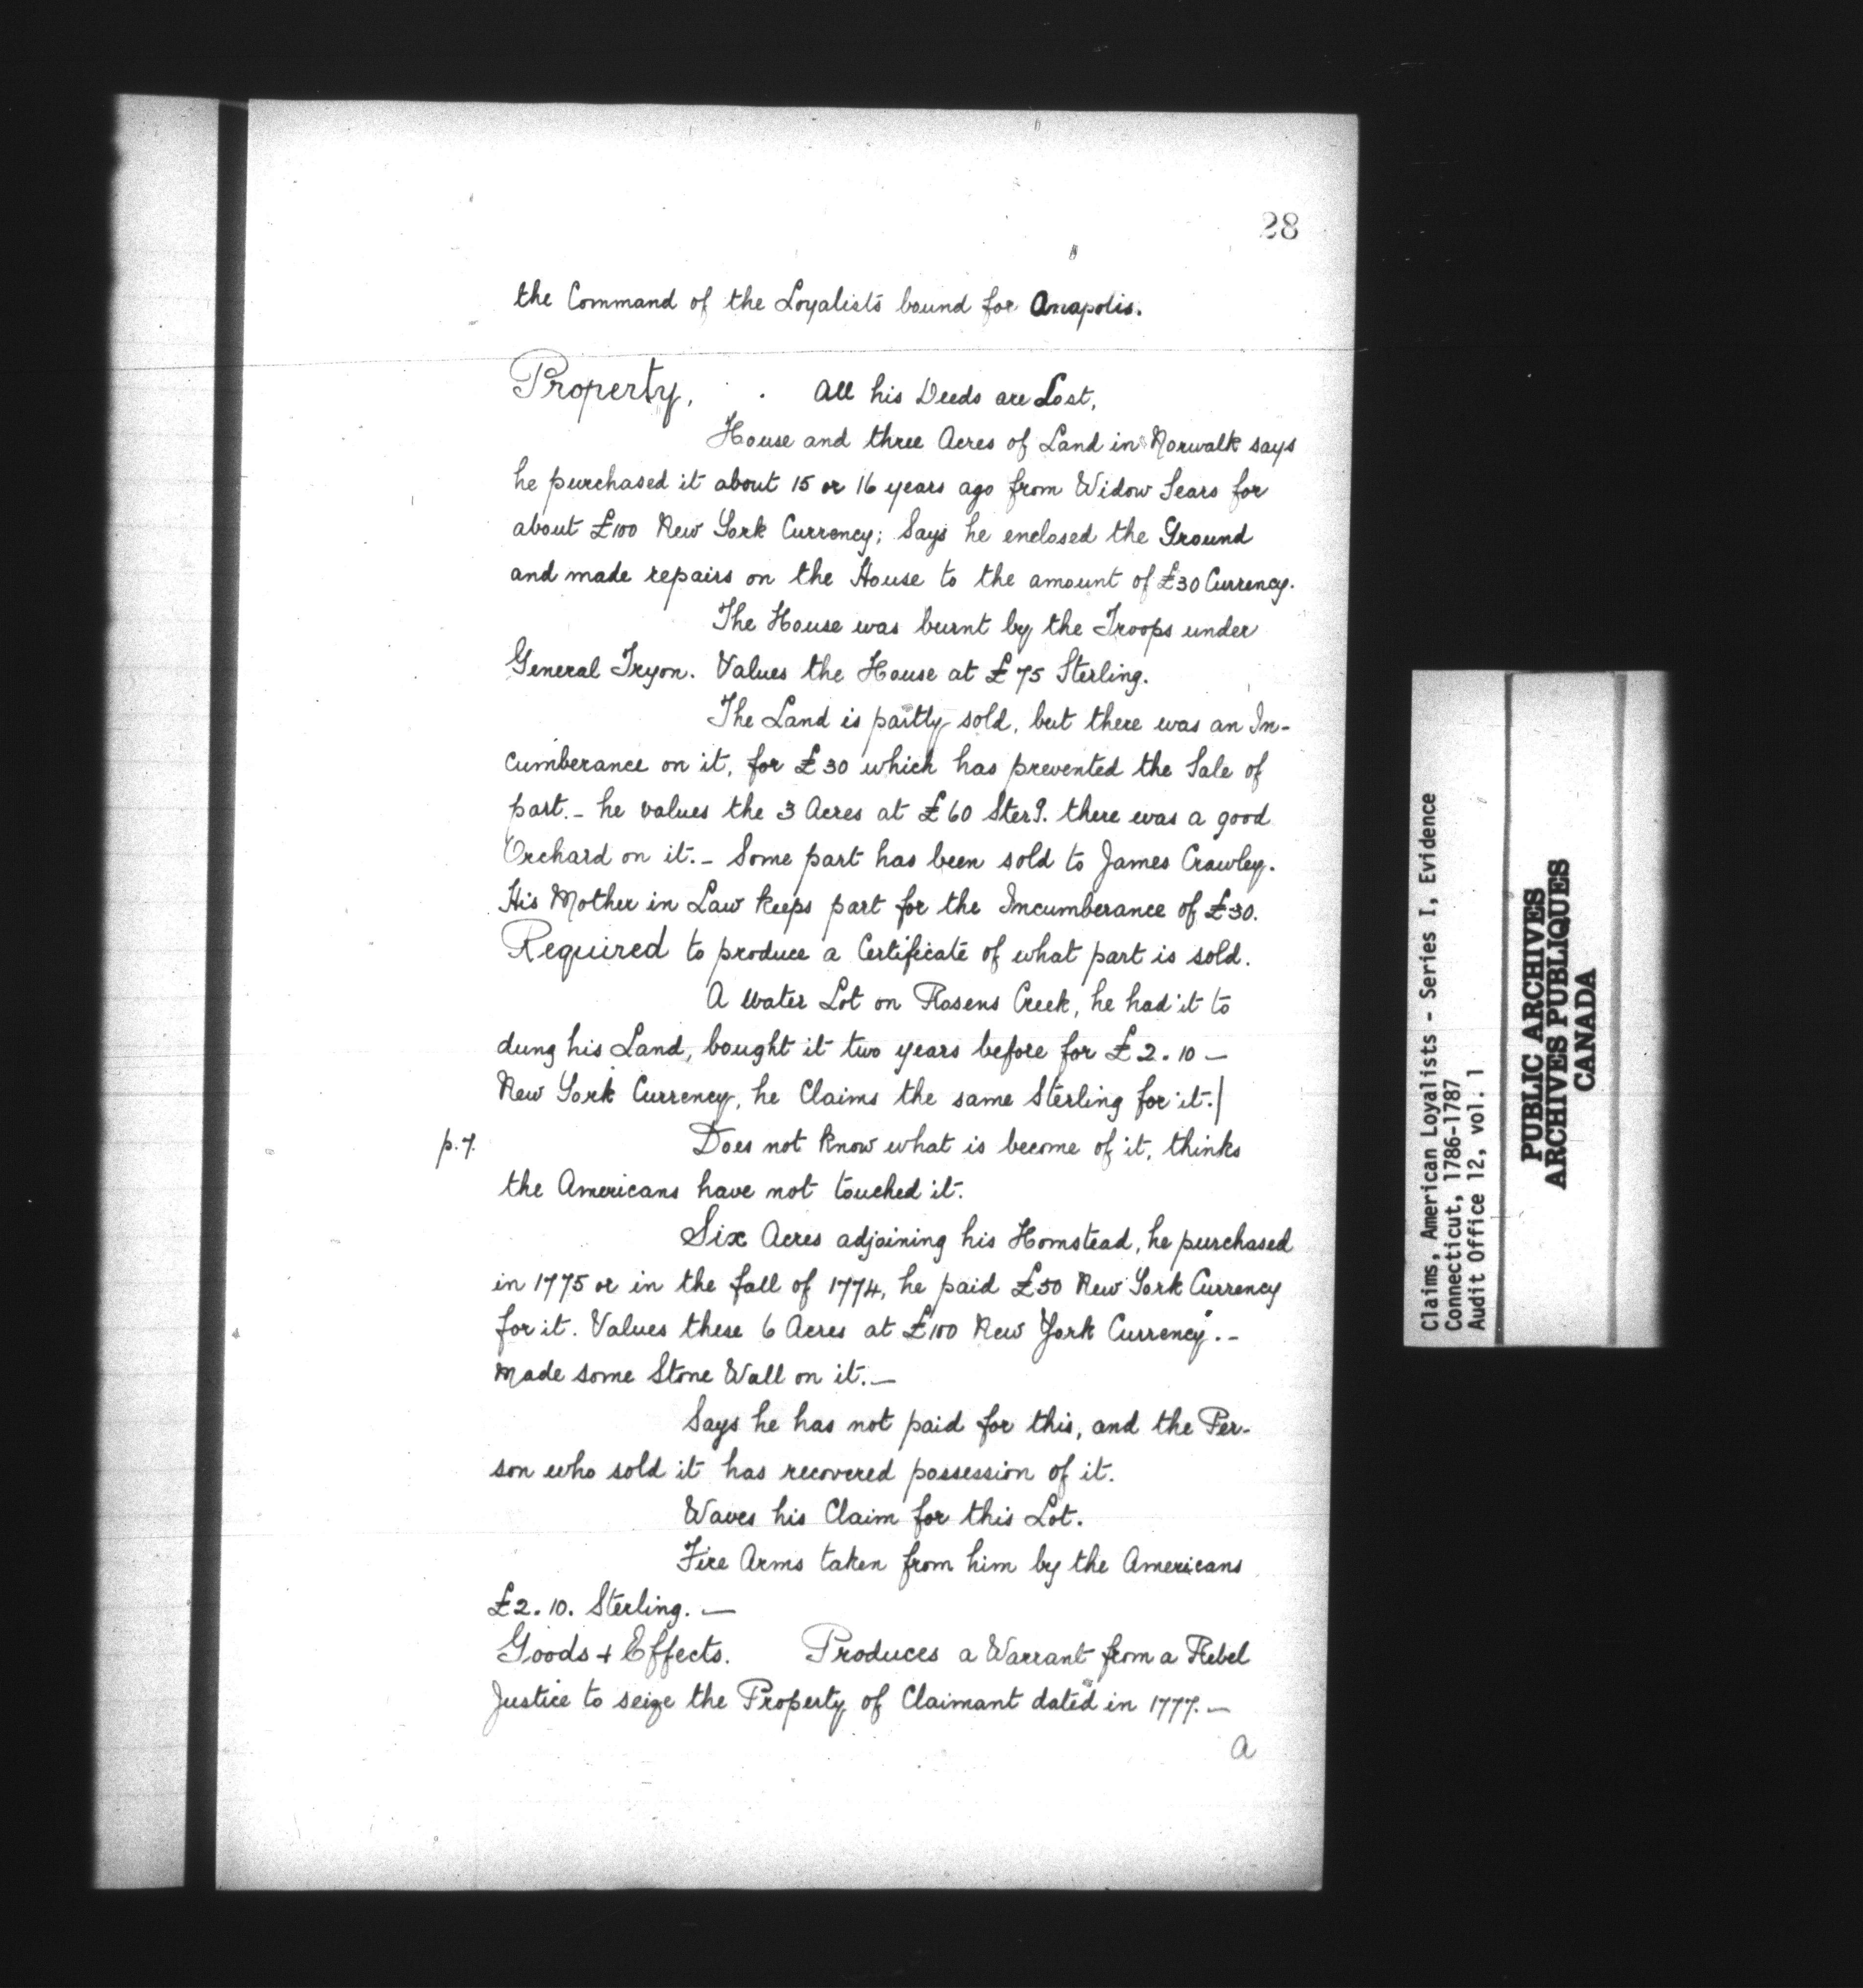 28
the Command of the Loyalists bound for Anapolis.
Property, . All his Deeds are Lost,
House and three Acres of Land in Norwalk says
he purchased it about 15 or 16 years ago from Widow Sears for
about £100 New York Currency; Says he enclosed the Ground
and made repairs on the House to the amount of £30 Currency.
The House was burnt by the Troops under
General Tryon. Values the House at £75 Sterling.
The Land is partly sold, but there was an In-
cumberance on it, for £30 which has prevented the Sale of
part. - he values the 3 Acres at £60 Sterg. there was a good
Orchard on it. - Some part has been sold to James Crawley.
His Mother in Law keeps part for the Incumberance of £30.
Required to produce a Certificate of what part is sold.
A Water Lot on Rosens Creek, he had it to
dung his Land, bought it two years before for £2.10 -
New York Currency, he Claims the same Sterling for it.|
p.7. Does not know what is become of it, thinks
the Americans have not touched it.
Six Acres adjoining his Homstead, he purchased
in 1775 or in the fall of 1774, he paid £50 New York Currency
for it. Values these 6 Acres at £100 New York Currency. -
Made some Stone Wall on it. -
Says he has not paid for this, and the Per-
son who sold it has recovered possession of it.
Waves his Claim for this Lot.
Fire Arms taken from him by the Americans
£2.10. Sterling. -
Goods + Effects. Produces a Warrant from a Rebel
Justice to seize the Property of Claimant dated in 1777. -
A
Claims, American Loyalists - Series I, Evidence
Connecticut, 1786-1787
Audit Office 12, vol. 1
PUBLIC ARCHIVES
ARCHIVES PUBLIQUES
CANADA